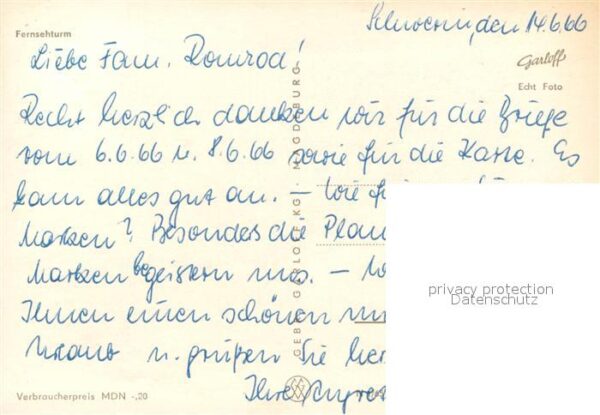 Fernsehturm
Schwerin, den 14.6.66
Liebe Fam. Romrod!
Garloff
Echt Foto
Recht herzlich danken wir für die Briefe
vom 6.6.66 u. 8.6.66 sowie für die Karte. Es
kam alles gut an. – Wie
Marken? Besonders die
Marken begeistern uns. –
Ihnen einen schönen
u. grüßen Sie
Ihre
GEBR. GARLOFF KG. MAGDEBURG
privacy protection
Datenschutz
Verbraucherpreis MDN -,20